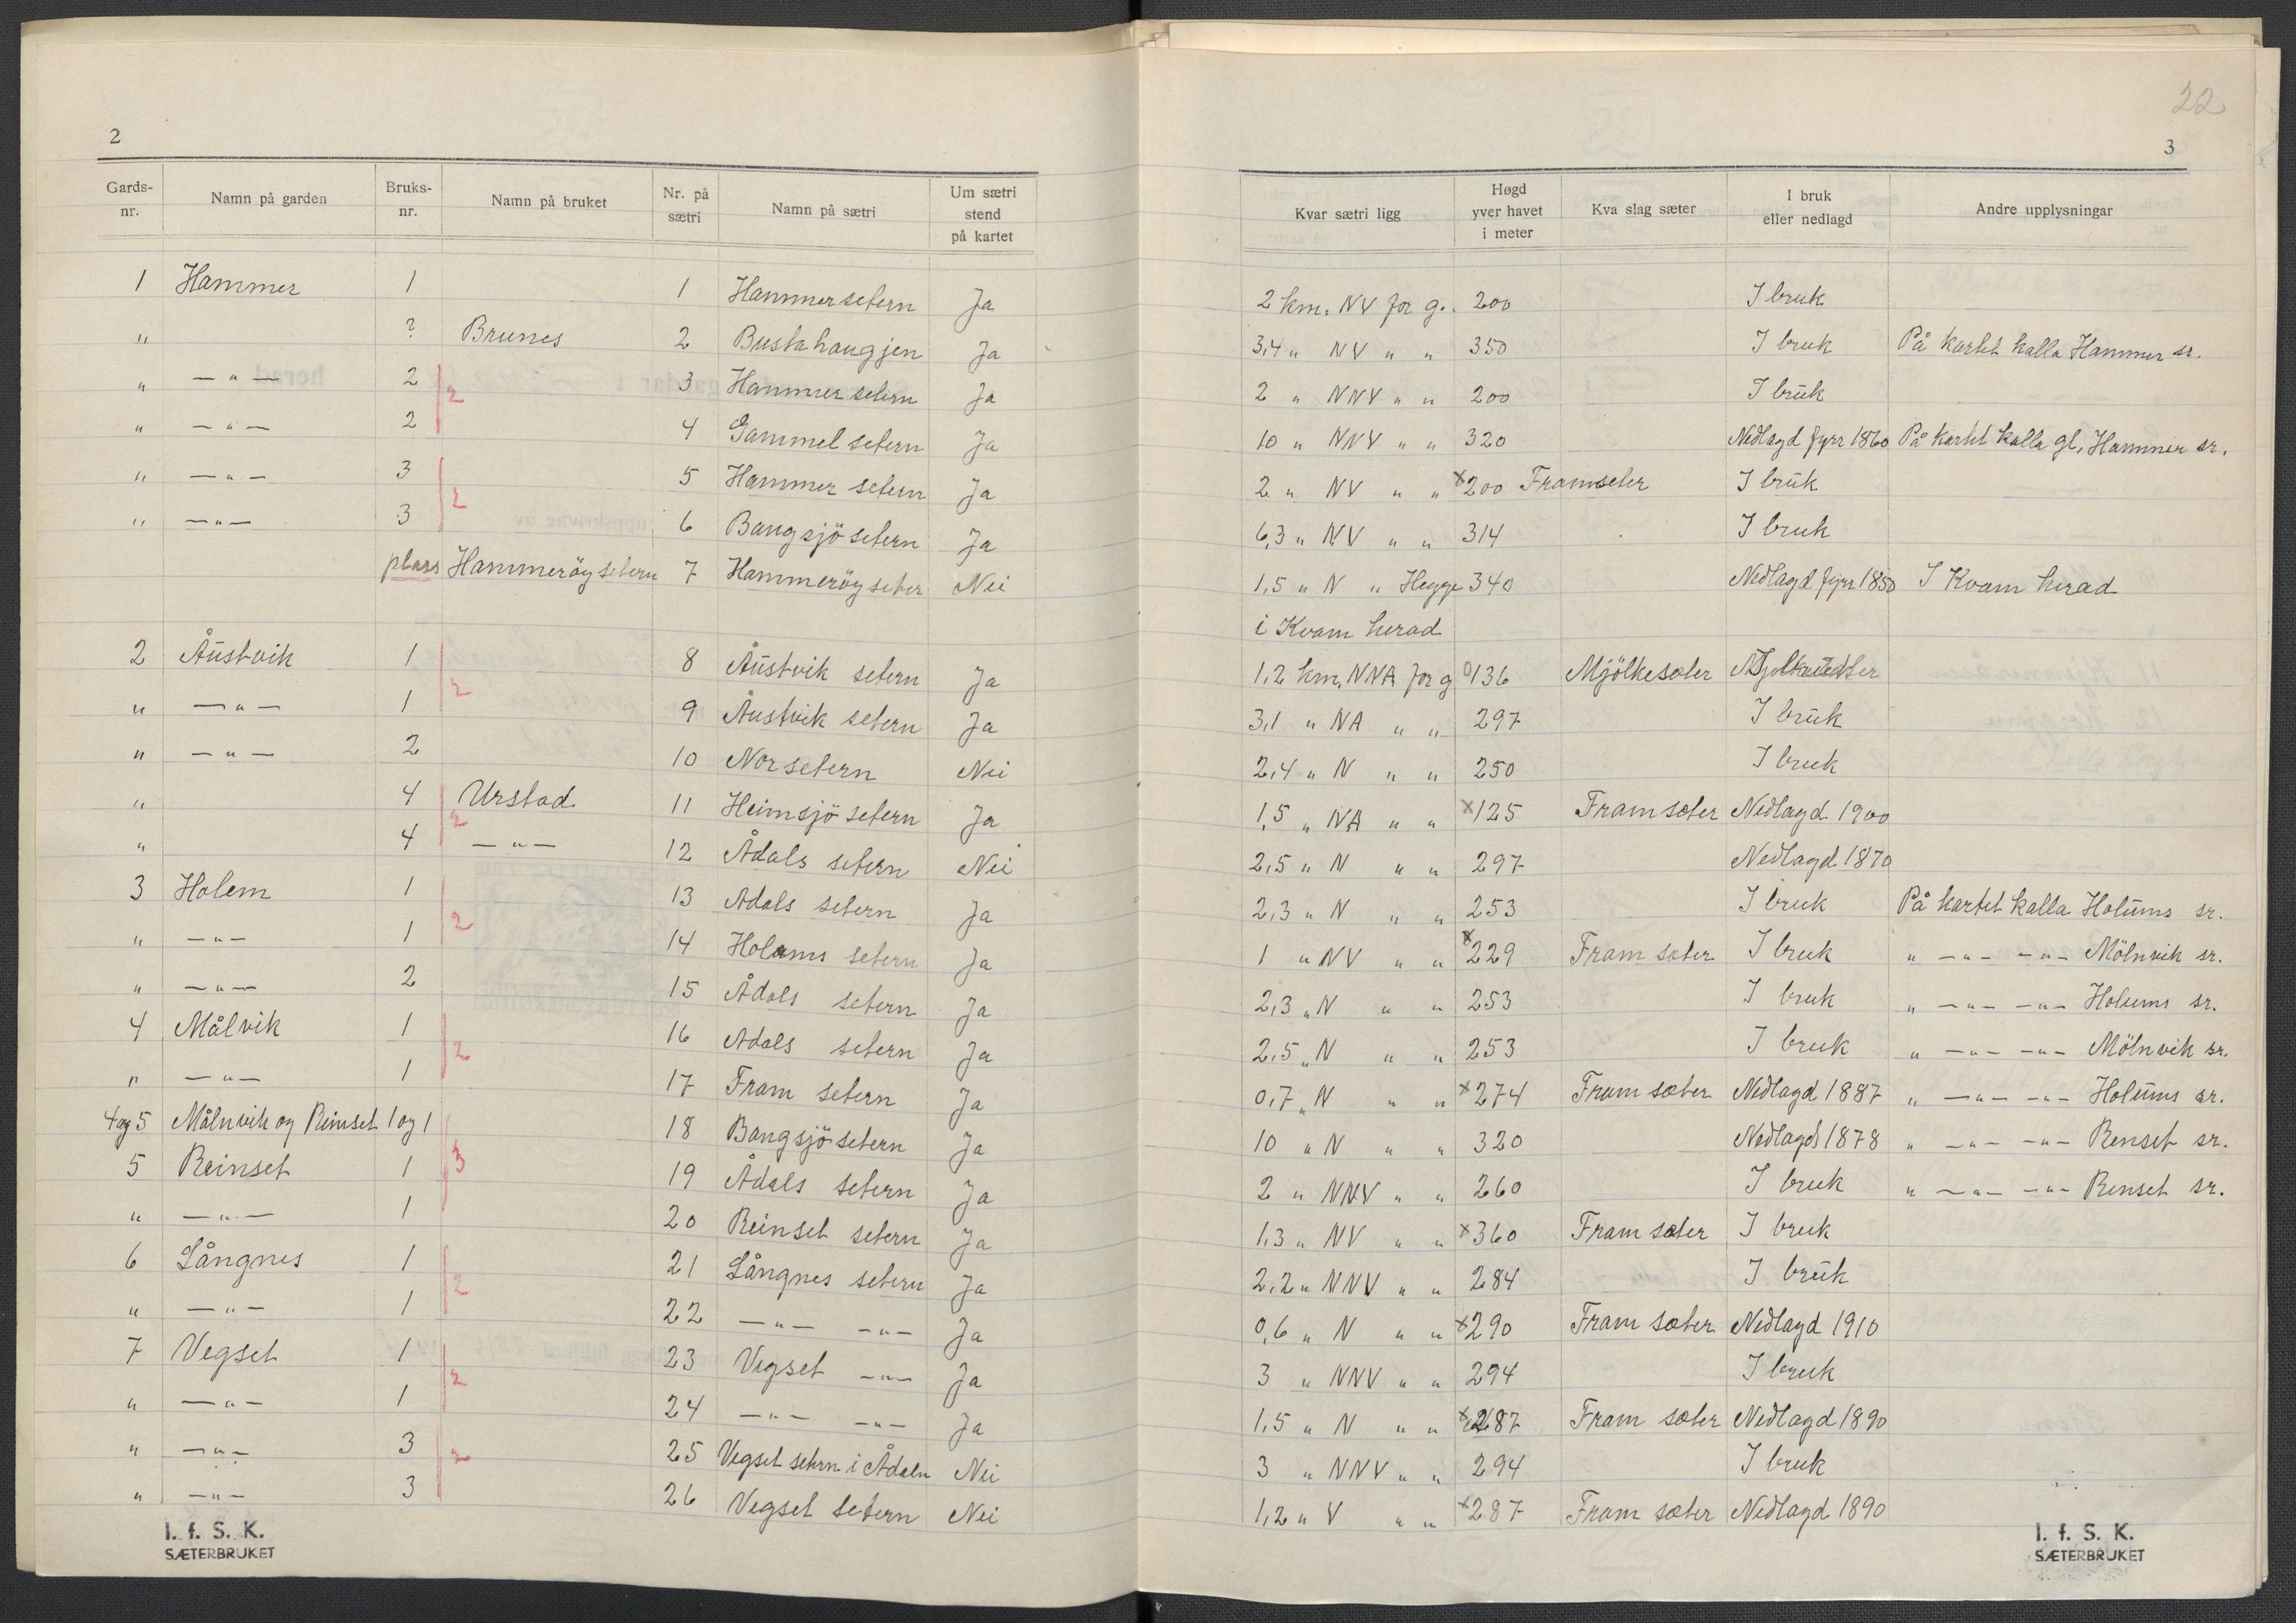 22
2
3
Gards-nr. | Namn på garden | Bruks-nr. | Namn på bruket | Nr. på sætri | Namn på sætri | Um sætri stend på kartet | Kvar sætri ligg | Høgd yver havet i meter | Kva slag sæter | I bruk eller nedlagd | Andre upplysningar
1 Hammer 1 1 Hammersetern Ja 2 km. NV for g. 200 I bruk
" ? Brunes 2 Bustahaugjen Ja 3,4 " NV " " 350 I bruk På kartet kalla Hammer sr.
" — " — 2 3 Hammersetern Ja 2 " NNV " " 200 I bruk
" — " — 2 4 Gammelsetern Ja 10 " NNV " " 320 Nedlagd fyrr 1860 På kartet kalla gl. Hammer sr.
" — " — 3 5 Hammer setern Ja 2 " NV " " x200 Framseter I bruk
" — " — 3 6 Bangsjösetern Ja 6,3 " NV " " 314 I bruk
plass Hammeröysetern 7 Hammeröyseter Nei 1,5 " N " Hegge 340 Nedlagd fyrr 1850 I Kvam herad
i Kvam herad
2 Austvik 1 8 Austvik setern Ja 1,2 km. NNA for g 136 Mjölkesæter
" — " — 1 9 Austvik setern Ja 3,1 " NA " " 297 I bruk
" — " — 2 10 Norsetern Nei 2,4 " N " " 250 I bruk
" 4 Urstad 11 Heimsjö setern Ja 1,5 " NA " " x125 Framsæter Nedlagd 1900
" 4 — " — 12 Ådals setern Nei 2,5 " N " " 297 Nedlagd 1870
3 Holem 1 13 Adals setern Ja 2,3 " N " " 253 I bruk På kartet kalla Holums sr.
" — " — 1 14 Holams setern Ja 1 " NV " " x229 Fram sæter I bruk " — " — — " — Mölnvik sr.
" — " — 2 15 Ådals setern Ja 2,3 " N " " 253 I bruk " — " — — " — Holums sr.
4 Målvik 1 16 Adals setern Ja 2,5 " N " " 253 I bruk " — " — — " — Mölnvik sr.
" — " — 1 17 Fram setern Ja 0,7 " N " " x274 Fram sæter Nedlagd 1887 " — " — — " — Holums sr.
4 og 5 Målnvik og Reinset 1 og 1 18 Bangsjösetern Ja 10 " N " " 320 Nedlagd 1878 " — " — — " — Renset sr.
5 Reinset 1 19 Ådals setern Ja 2 " NNV " " 260 I bruk " — " — — " — Renset sr.
" — " — 1 20 Reinset setern Ja 1,3 " NV " " x360 Fram sæter I bruk
6 Långnes 1 21 Långnes setern Ja 2,2 " NNV " " 284 I bruk
" — " — 1 22 — " — — " — Ja 0,6 " N " " x290 Fram sæter Nedlagd 1910
7 Vegset 1 23 Vegset — " — Ja 3 " NNV " " 294 I bruk
" — " — 1 24 — " — — " — Ja 1,5 " N " " x287 Fram sæter Nedlagd 1890
" — " — 3 25 Vegset setern i Ådaln Nei 3 " NNV " " 294 I bruk
" — " — 3 26 Vegset setern Nei 1,2 " V " " x287 Fram sæter Nedlagd 1890
2
2
2
2
2
2
3
2
2
2
I. f. S. K.
SÆTERBRUKET
I. f. S. K.
SÆTERBRUKET